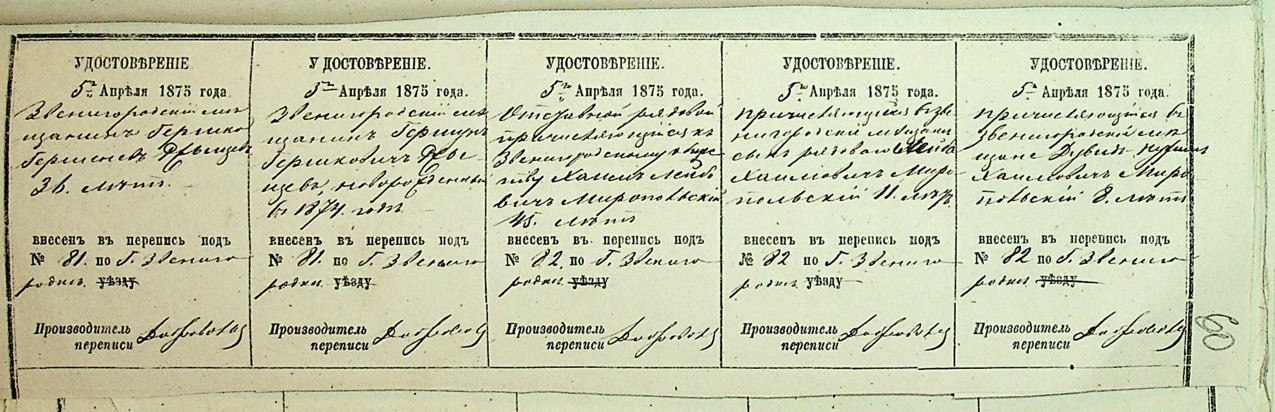 УДОСТОВѢРЕНІЕ
5го Апрѣля 1875 года.
Звенигородскій мѣ
щанинъ Гершко
36. лѣтъ.
внесенъ въ перепись подъ
№ 81. по Г. Звениго
родкѣ уѣзду
Производитель
переписи
УДОСТОВѢРЕНІЕ.
5го Апрѣля 1875 года.
Звенигородскій мѣ
щанинъ
Гершковичъ
новорожденный
въ 1874. годѣ
внесенъ въ перепись подъ
№ 81. по Г. Звениго
родкѣ уѣзду
Производитель
переписи
УДОСТОВѢРЕНІЕ.
5го Апрѣля 1875 года.
Отставной рядовой
причисляющійся къ
Звенигородскому
Хаимъ Лейбо
вичъ Миропольскій
45. лѣтъ
внесенъ въ перепись подъ
№ 82. по Г. Звениго
родкѣ уѣзду
Производитель
переписи
УДОСТОВѢРЕНІЕ.
5го Апрѣля 1875 года.
причисляющійся въ Зве
нигородскіи мѣщани
сынъ рядоваго Лейба
Хаимовичъ Миро
польскій 11. лѣтъ
внесенъ въ перепись подъ
№ 82 по Г. Звениго
родкѣ уѣзду
Производитель
переписи
УДОСТОВѢРЕНІЕ.
5го Апрѣля 1875 года.
причисляющійся въ
Звенигородскіи мѣ
щане Дувидъ
Хаимовичъ Миро
польскій 8. лѣтъ
внесенъ въ перепись подъ
№ 82 по Г. Звениго
родкѣ уѣзду
Производитель
переписи
60